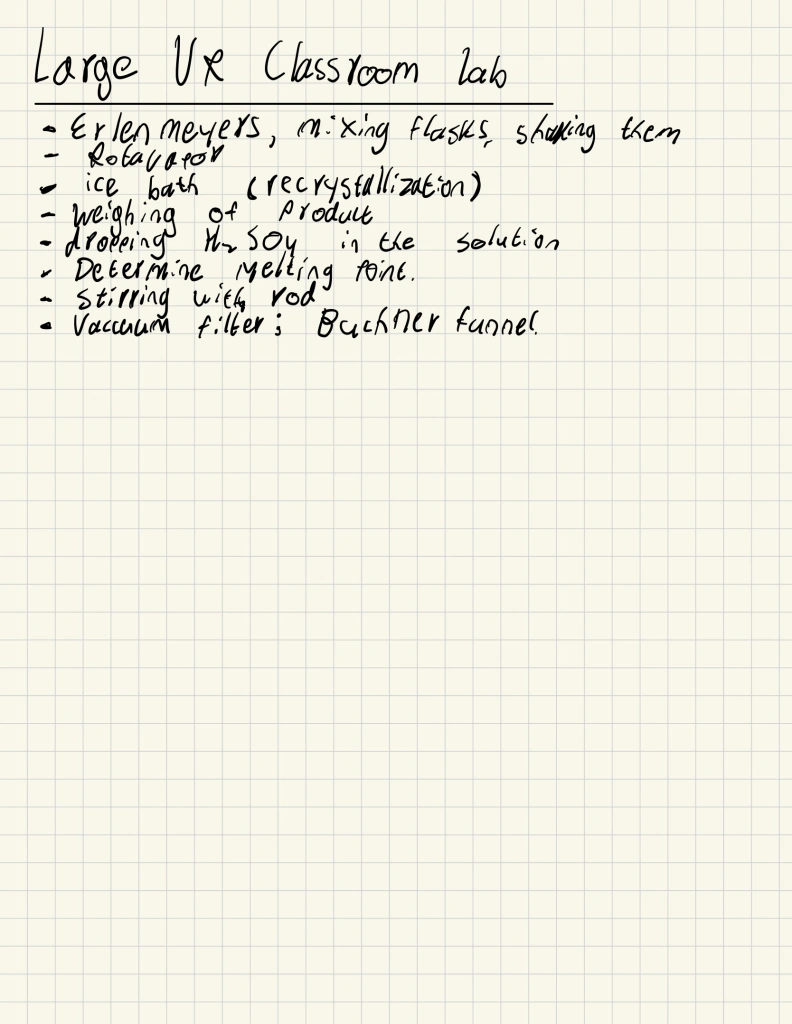 Large VR Classroom lab
- Erlenmeyers, mixing flasks, shaking them
- Rotavapor
- ice bath (recrystallization)
- weighing of Product
- dropping H2SO4 in the solution
- Determine Melting Point.
- stirring with rod
- Vacuum filter; Buchner funnel.